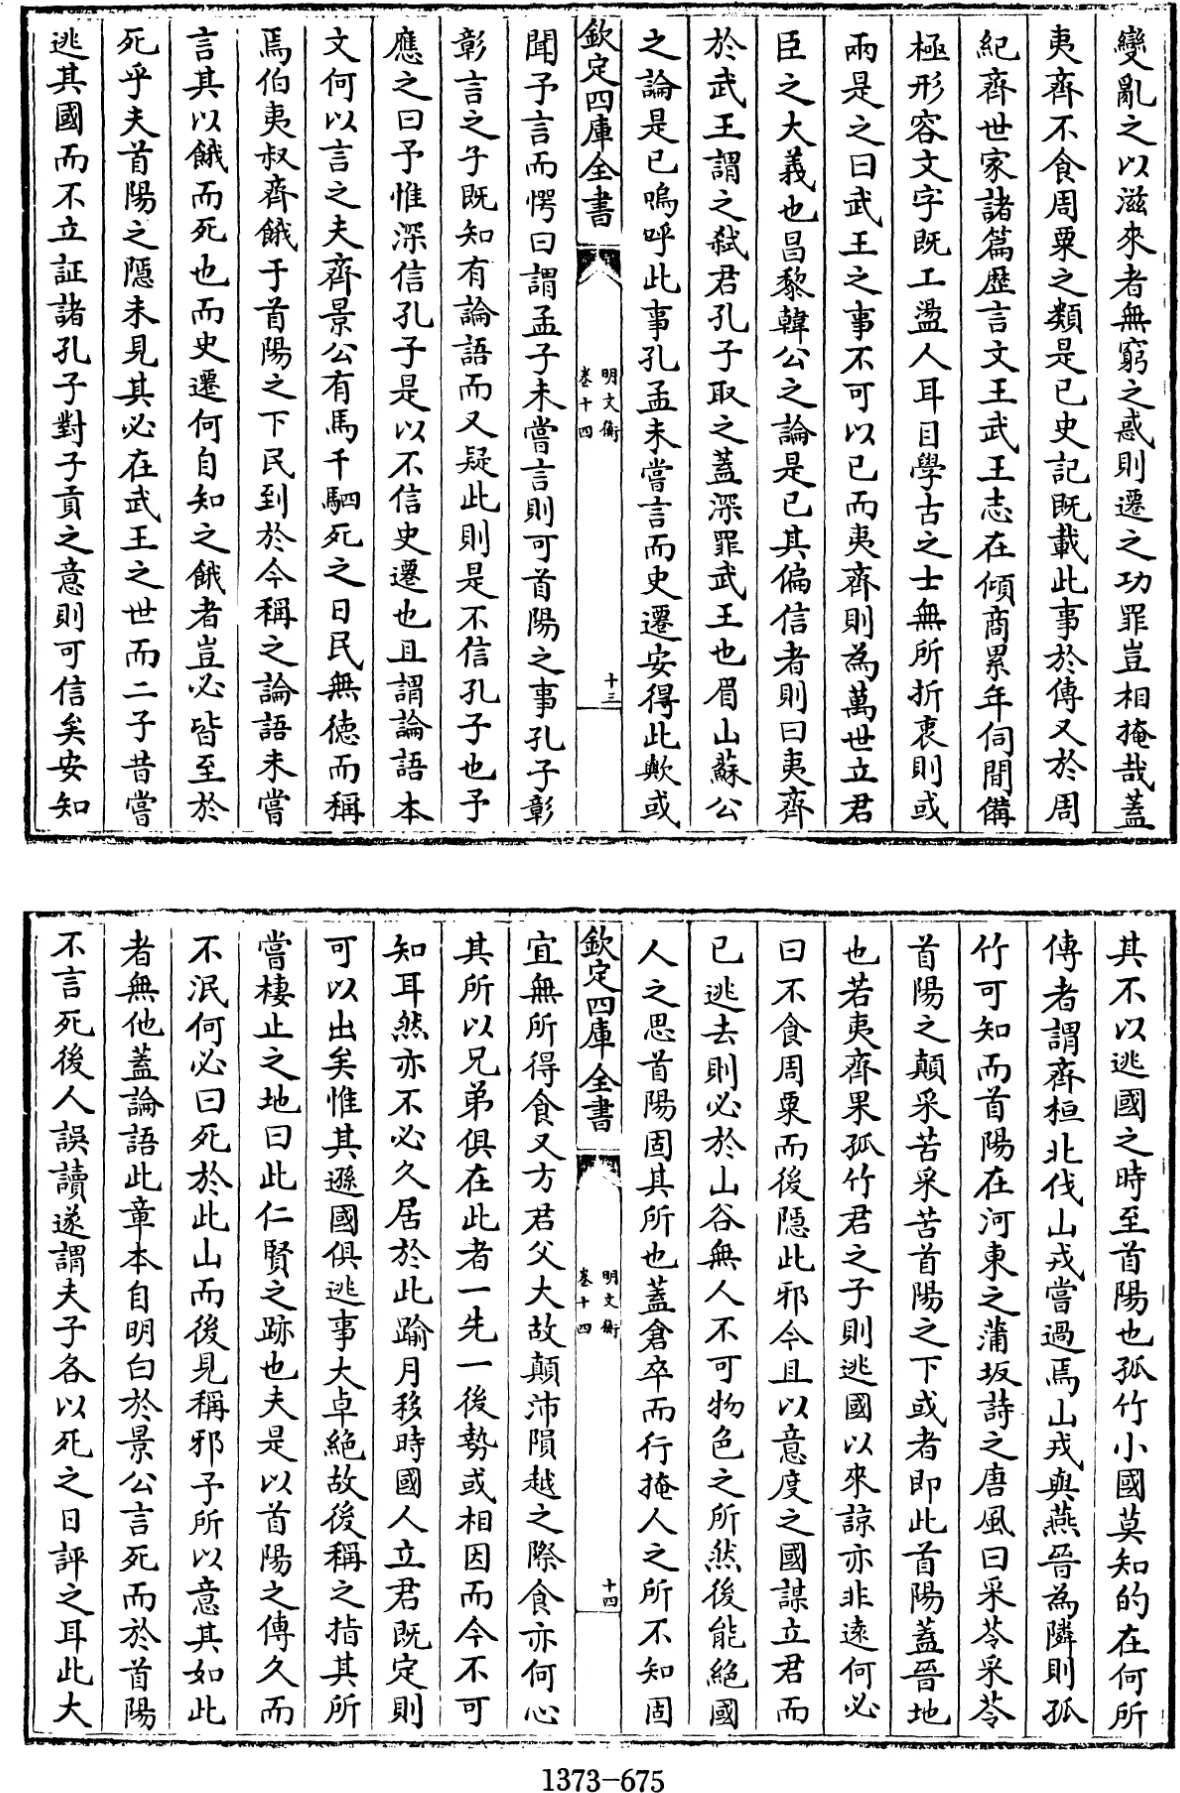 變亂之以滋來者無窮之惑則遷之功罪豈相掩哉蓋
夷齊不食周粟之類是已史記既載此事於傳又於周
紀齊世家諸篇歷言文王武王志在傾商累年伺間備
極形容文字既工盪人耳目學古之士無所折衷則或
兩是之曰武王之事不可以已而夷齊則為萬世立君
臣之大義也昌黎韓公之論是已其偏信者則曰夷齊
於武王謂之弑君孔子取之蓋深罪武王也眉山蘇公
之論是已嗚呼此事孔孟未嘗言而史遷安得此歟或
欽定四庫全書
明文衡
卷十四
十三
聞予言而愕曰謂孟子未嘗言則可首陽之事孔子彰
彰言之子既知有論語而又疑此則是不信孔子也予
應之曰予惟深信孔子是以不信史遷也且謂論語本
文何以言之夫齊景公有馬千駟死之日民無德而稱
焉伯夷叔齊餓于首陽之下民到於今稱之論語未嘗
言其以餓而死也而史遷何自知之餓者豈必皆至於
死乎夫首陽之隱未見其必在武王之世而二子昔嘗
逃其國而不立証諸孔子對子貢之意則可信矣安知
其不以逃國之時至首陽也孤竹小國莫知的在何所
傳者謂齊桓北伐山戎嘗過焉山戎與燕晉為隣則孤
竹可知而首陽在河東之蒲坂詩之唐風曰采苓采苓
首陽之顛采苦采苦首陽之下或者即此首陽蓋晉地
也若夷齊果孤竹君之子則逃國以來諒亦非遠何必
曰不食周粟而後隱此邪今且以意度之國謀立君而
已逃去則必於山谷無人不可物色之所然後能絕國
人之思首陽固其所也蓋倉卒而行掩人之所不知固
欽定四庫全書
明文衡
卷十四
十四
宜無所得食又方君父大故顛沛隕越之際食亦何心
其所以兄弟俱在此者一先一後勢或相因而今不可
知耳然亦不必久居於此踰月移時國人立君既定則
可以出矣惟其遜國俱逃事大卓絕故後稱之指其所
嘗棲止之地曰此仁賢之跡也夫是以首陽之傳久而
不泯何必曰死於此山而後見稱邪予所以意其如此
者無他蓋論語此章本自明白於景公言死而於首陽
不言死後人誤讀遂謂夫子各以死之日評之耳此大
1373-675